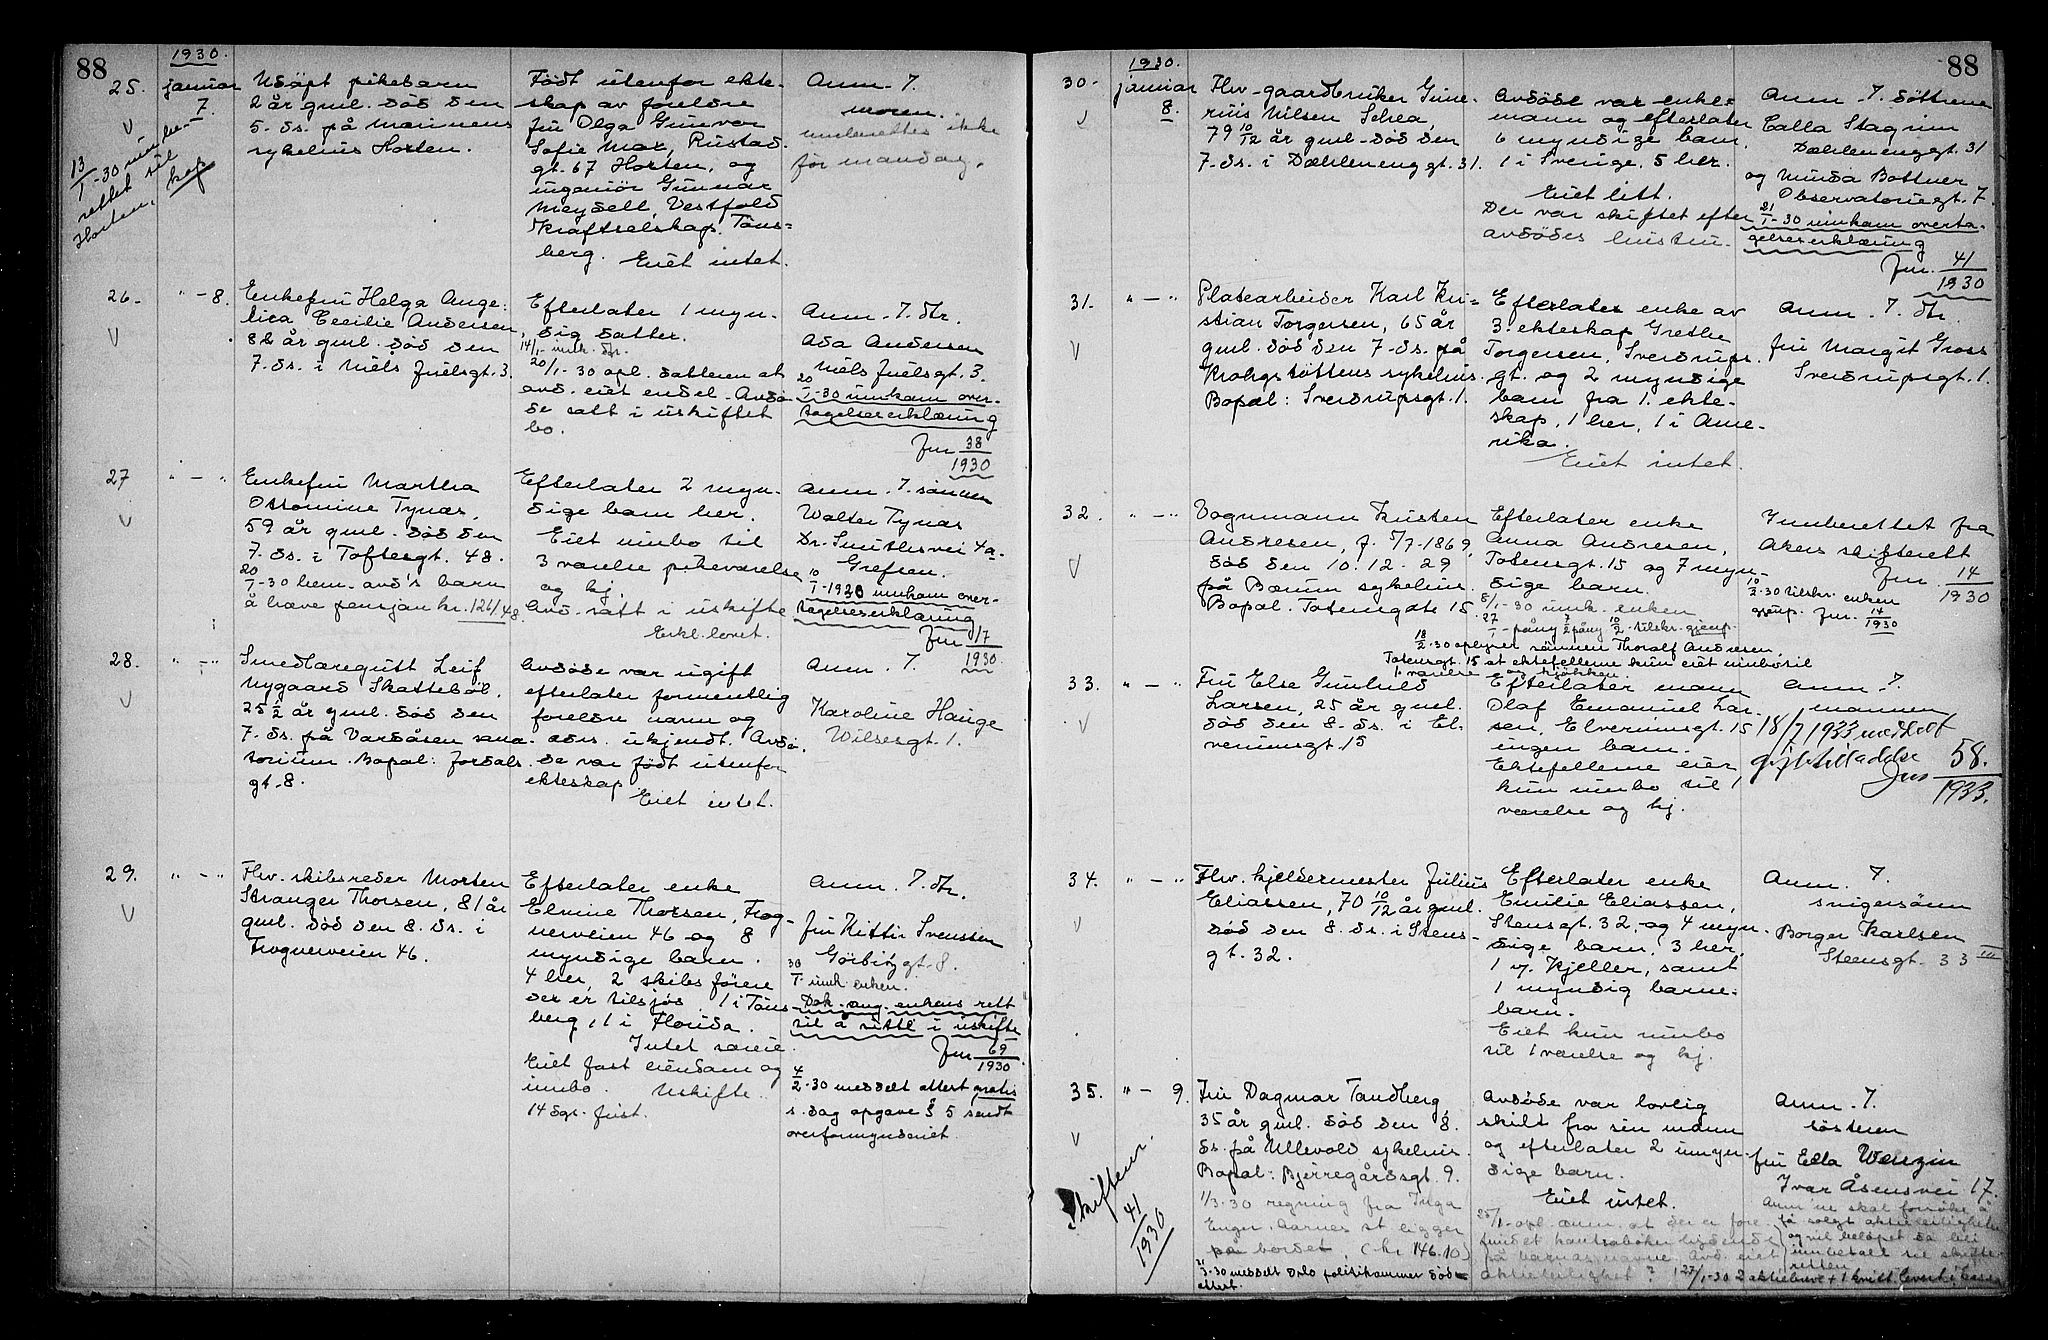 88
1930.
25. januar 7.
13/1-30 innbe-
rettet til
Horten,
kop
Udöpt pikebarn
2 år gml. död den
5. ds. på Marinens
sykehus Horten.
Födt utenfor ekte-
skap av foreldre
fru Olga Gunvor
Sofie Moe, Rustad
gt. 67 Horten, og
ingeniör Gunnar
Meydell, Vestfold
Kraftselskap, Töns-
berg. Eiet intet.
Anm. 7.
moren.
innberettes ikke
för mandag.
26. " - 8.
Enkefru Helga Ange-
lica Cecilie Andersen,
82 år gml. död den
7. ds. i Niels Juelsgt. 3.
Efterlater 1 myn-
dig datter.
14/1- innk. dtr.
20/1-30 opl. datteren at
avd. eiet endel. Avdö-
de satt i uskiftet
bo.
Anm. 7. dtr.
Ada Andersen
Niels Juelsgt. 3.
20/1-30 innkom over-
tagelseserklæring
Jnr 38/1930
27 " - "
Enkefru Martha
Ottomine Tynæs,
59 år gml. död den
7. ds. i Toftesgt. 48.
20/1-30 hen. avd's barn
å hæve pensjon kr. 126/48.
Efterlater 2 myn-
dige barn her.
Eiet innbo til
3 værelse pikeværelse
og kj.
Avd. satt i uskifte
Erkl. lovet.
Anm. 7. sönnen
Walter Tynæs
Dr. Smithsvei 4a-
Grefsen.
10/1-1930 innkom over-
tagelseserklæring
Jnr 17/1930
28. " - "
Smedlæregutt Leif
Nygaard Skatteböl,
25 1/2 år gml. död den
7. ds. på Vardåsen sana-
torium. Bopæl: Jordals
gt. 8.
Avdöde var ugift
efterlater formentlig
foreldre navn og
adrs. ukjendt. Avdö-
de var födt utenfor
ekteskap
Eiet intet.
Anm. 7.
Karoline Hauge
Wilsesgt. 1.
29. " - "
Fhv. skibsreder Morten
Stranger Thorsen, 81 år
gml. död den 8. ds. i
Frognerveien 46.
Efterlater enke
Elmine Thorsen, Frog-
nerveien 46 og 8
myndige barn.
4 her, 2 skibsförere
der er tilsjös, 1 i Töns-
berg, 1 i Florida.
Intet særeie.
Eiet fast eiendom og
innbo. Uskifte.
14 dgs. frist.
Anm. 7. dtr.
fru Kittie Svenssen
Görbitzgt. 8.
30/1 innk. enken.
Dok. ang. enkens rett
til å sitte i uskifte
Jnr 69/1930
4/2-30 meddelt attest gratis
s. dag opgave § 5 sendt
overformynderiet.
88
1930.
30. januar 8.
Fhv. gaardbruker Gune-
rius Nilsen Schea,
79 10/12 år gml. död den
7. ds. i Dælenenggt. 31.
Avdöde var enke-
mann og efterlater
6 myndige barn,
1 i Sverige, 5 her.
Eiet litt.
Der var skiftet efter
avdödes hustru.
Anm. 7. döttrene
Calla Stagrim
Dælenenggt. 31
og Minda Bottner
Observatoriegt. 7.
21/1-30 innkom overta-
gelseserklæring
Jnr. 41/1930
31. " - "
Platearbeider Karl Kri-
stian Torgersen, 65 år
gml. död den 7. ds. på
Krohgstöttens sykehus.
Bopæl: Sverdrupsgt. 1.
Efterlater enke av
3. ekteskap Grethe
Torgersen, Sverdrups.
gt. og 2 myndige
barn fra 1. ekte-
skap, 1 her, 1 i Ame-
rika.
Eiet intet.
Anm. 7. dtr
fru Margit Gross
Sverdrupsgt. 1.
32. " - "
Vognmann Kristen
Andresen, f. 5/7-1869,
död den 10. 12. 29
på Bærum sykehus.
Bopæl. Totengate 15.
Efterlater enke
Anna Andresen,
Totensgt. 15 og 7 myn-
dige barn.
8/1-30 innk. enken
27/1-påny 7/2 påny 10/2-tilskr. gjenp.
18/2-30 oplyser sönnen Thoralf Andresen,
Totensgt. 15 at ektefellene kun eiet innbo til
1 værelse og kjökken.
Innberettet fra
Akers skifterett
Jnr. 14/1930
10/2-30 tilskr. enken
gjenp. Jnr. 14/1930
33. " - "
Fru Else Gunhild
Larsen, 25 år gml.
död den 8. ds. i El-
verumsgt. 15
Efterlater mann
Olaf Emanuel Lar-
sen, Elverumsgt. 15
ingen barn.
Ektefellene eier
kun innbo til 1
værelse og kj.
Anm. 7.
mannen
18/7 1933 meddelt
giftetilladelse
Jnr 58./1933.
34. " - "
Fhv. kjeldermester Julius
Eliassen, 70 10/12 år gml.
död den 8. ds. i Stens-
gt. 32.
Efterlater enke
Emilie Eliassen,
Stensgt. 32, og 4 myn-
dige barn, 3 her,
1 v. Kjeller, samt
1 myndig barne-
barn.
Eiet kun innbo
til 1 værelse og kj.
Anm. 7.
svigersönn
Borger Karlsen
Steensgt. 33 III
35. " - 9.
Skiftenr. 41/1930
Fru Dagmar Tandberg,
35 år gml. död den 8.
ds. på Ullevold sykehus.
Bopæl: Bjerregårdsgt. 9.
1/3.30 regning fra Inga
Enger. Aarnes st. ligger
på bordet. (kr 146.10)
21/3-30 meddelt Oslo politikammer död-
attest.
Avdöde var lovlig
skilt fra sin mann
og efterlater 2 umyn-
dige barn.
Eiet intet.
25/1-opl. anm. at der er fore-
fundet bankböker lydende
på barnas navne. Avd. eiet
aktieleilighet?
Anm. 7.
söstren
fru Ella Wenzin
Ivar Åsensvei 17.
Anm. ne skal forsöke å
få solgt aktieleiligheten
og vil belöpet da bli
innbetalt til skifte-
retten
27/1-30 2 aktiebreve + 1 kvitt. levert i kassa